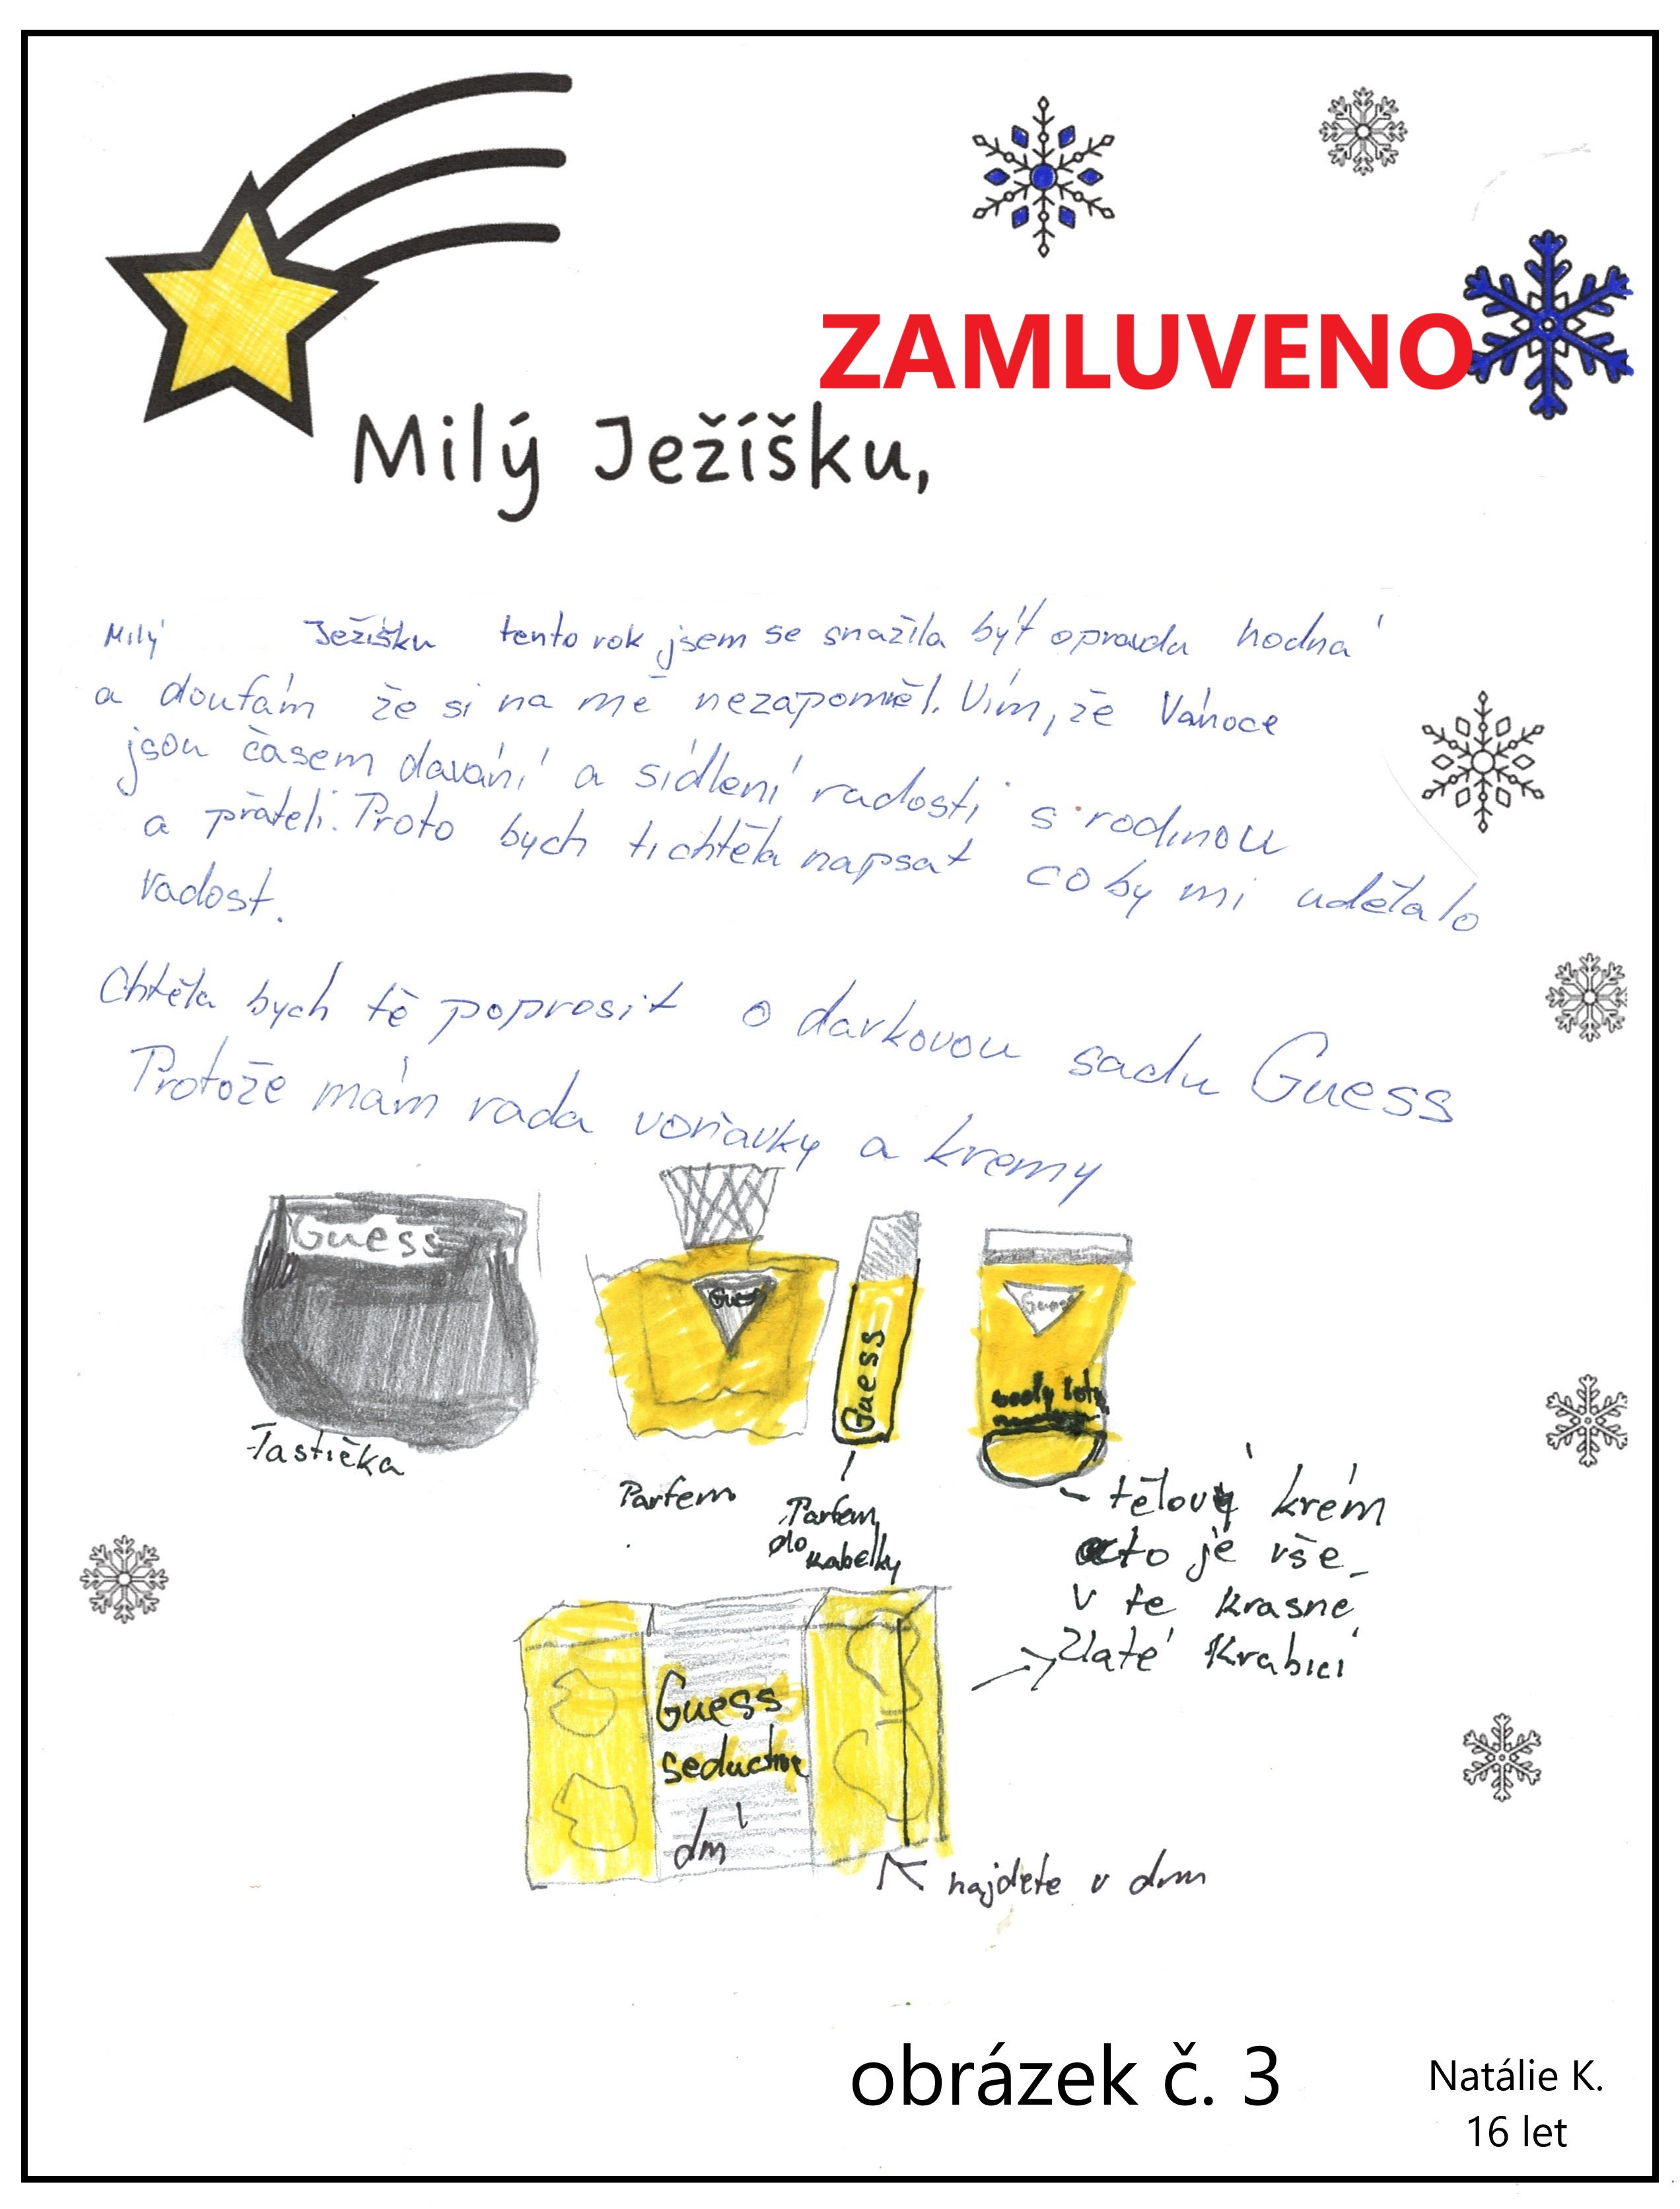 ZAMLUVENO
Milý Ježíšku,
Milý Ježíšku tento rok jsem se snažila být opravdu hodná
a doufám že si na mě nezapoměl. Vím, že Vánoce
jsou časem davání a sídlení radosti s rodinou
a přáteli. Proto bych ti chtěla napsat co by mi udělalo
radost.
Chtěla bych tě poprosit o darkovou sadu Guess
Protože mám rada voňavky a kremy
Guess
Guess
Guess
Guess
Tastička
Parfem
Parfem
do kabelky
tělový krém
a to je vše
v te krasne
zlaté krabici
Guess
seductive
dm
najdete v dm
obrázek č. 3
Natálie K.
16 let